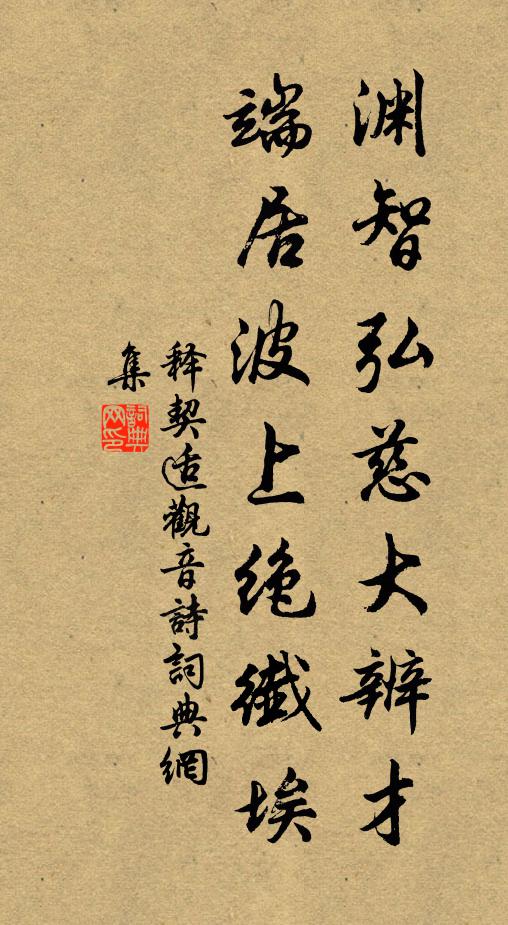 渊智弘慈大辨才
端居波上绝纖埃
释契适觀音詩詞典網
集
詞典网印